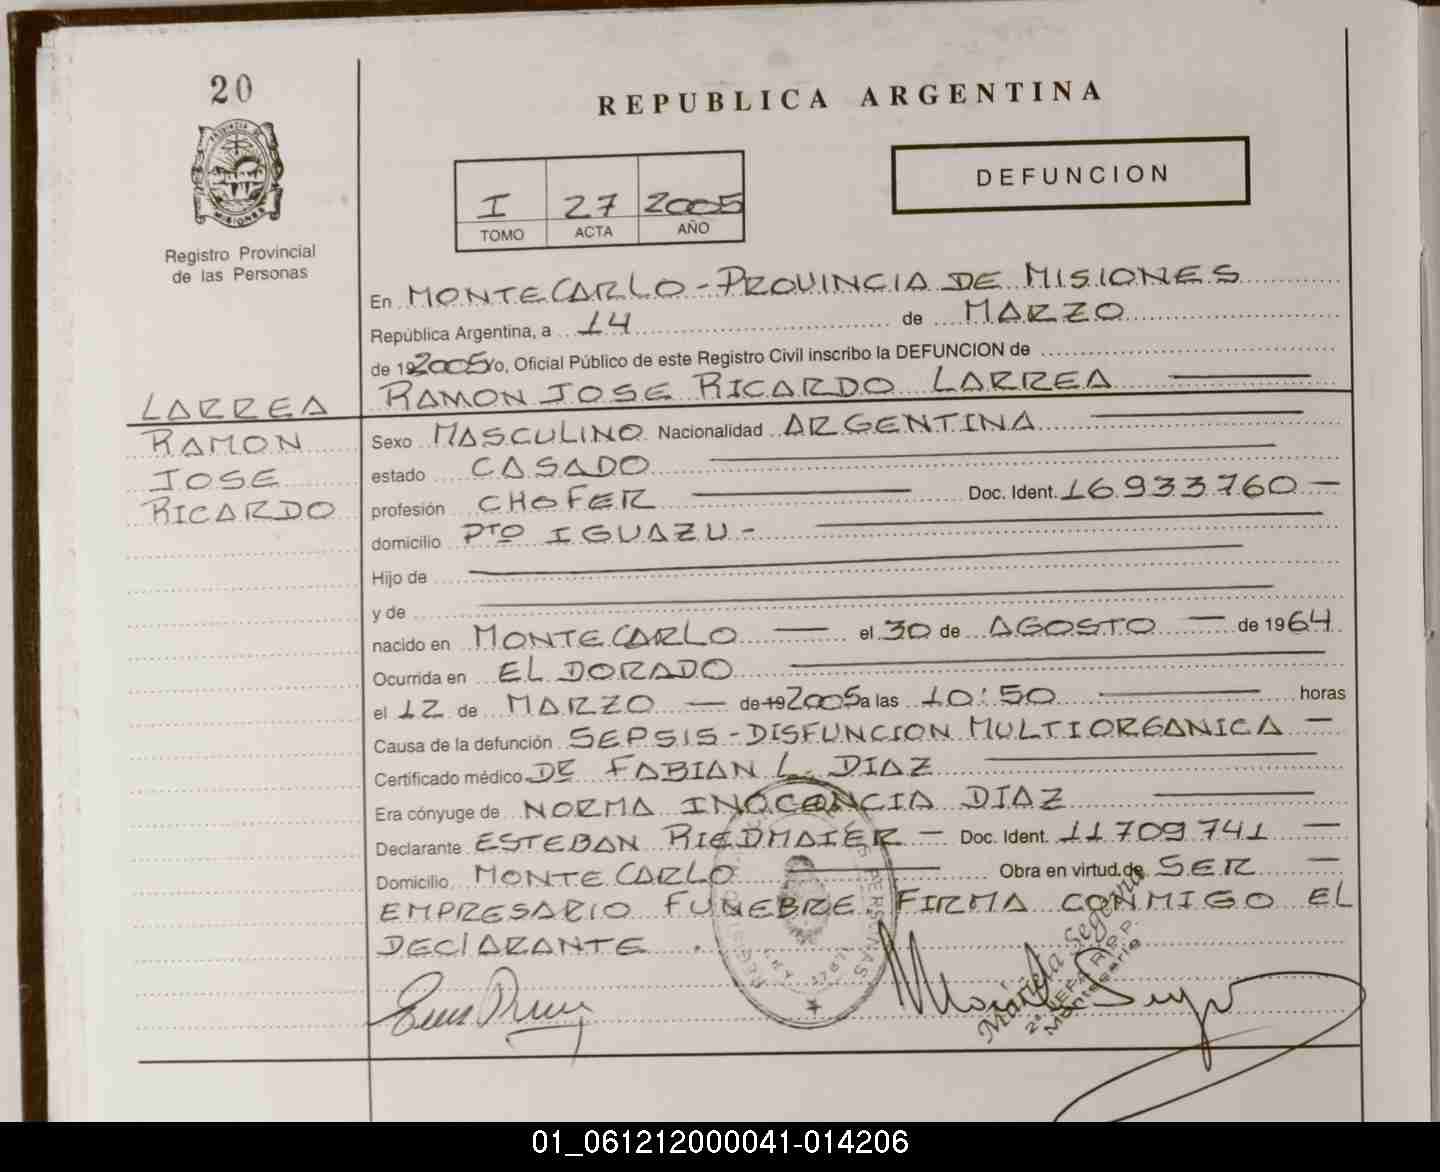 20
REPUBLICA ARGENTINA
PROVINCIA DE
MISIONES
Registro Provincial
de las Personas
DEFUNCION
I 27 2005
TOMO ACTA AÑO
En MONTECARLO - PROVINCIA DE MISIONES
República Argentina, a 14 de MARZO
de 192005 Yo, Oficial Público de este Registro Civil inscribo la DEFUNCION de
LARREA RAMON JOSE RICARDO LARREA
RAMON
JOSE
RICARDO
Sexo MASCULINO Nacionalidad ARGENTINA
estado CASADO
profesión CHOFER Doc. Ident. 16933760 -
domicilio PTO IGUAZU -
Hijo de
y de
nacido en MONTECARLO el 30 de AGOSTO de 1964
Ocurrida en ELDORADO
el 12 de MARZO de 192005 a las 10:50 horas
Causa de la defunción SEPSIS - DISFUNCION MULTIORGANICA -
Certificado médico DE FABIAN L. DIAZ
Era cónyuge de NORMA INOCENCIA DIAZ
Declarante ESTEBAN RIEDMAIER - Doc. Ident. 11709741 -
Domicilio MONTECARLO Obra en virtud de SER -
EMPRESARIO FUNEBRE. FIRMA CONMIGO EL
DECLARANTE.
Mariela Segovia
2ª JEFA R.P.P.
Montecarlo
01_061212000041-014206